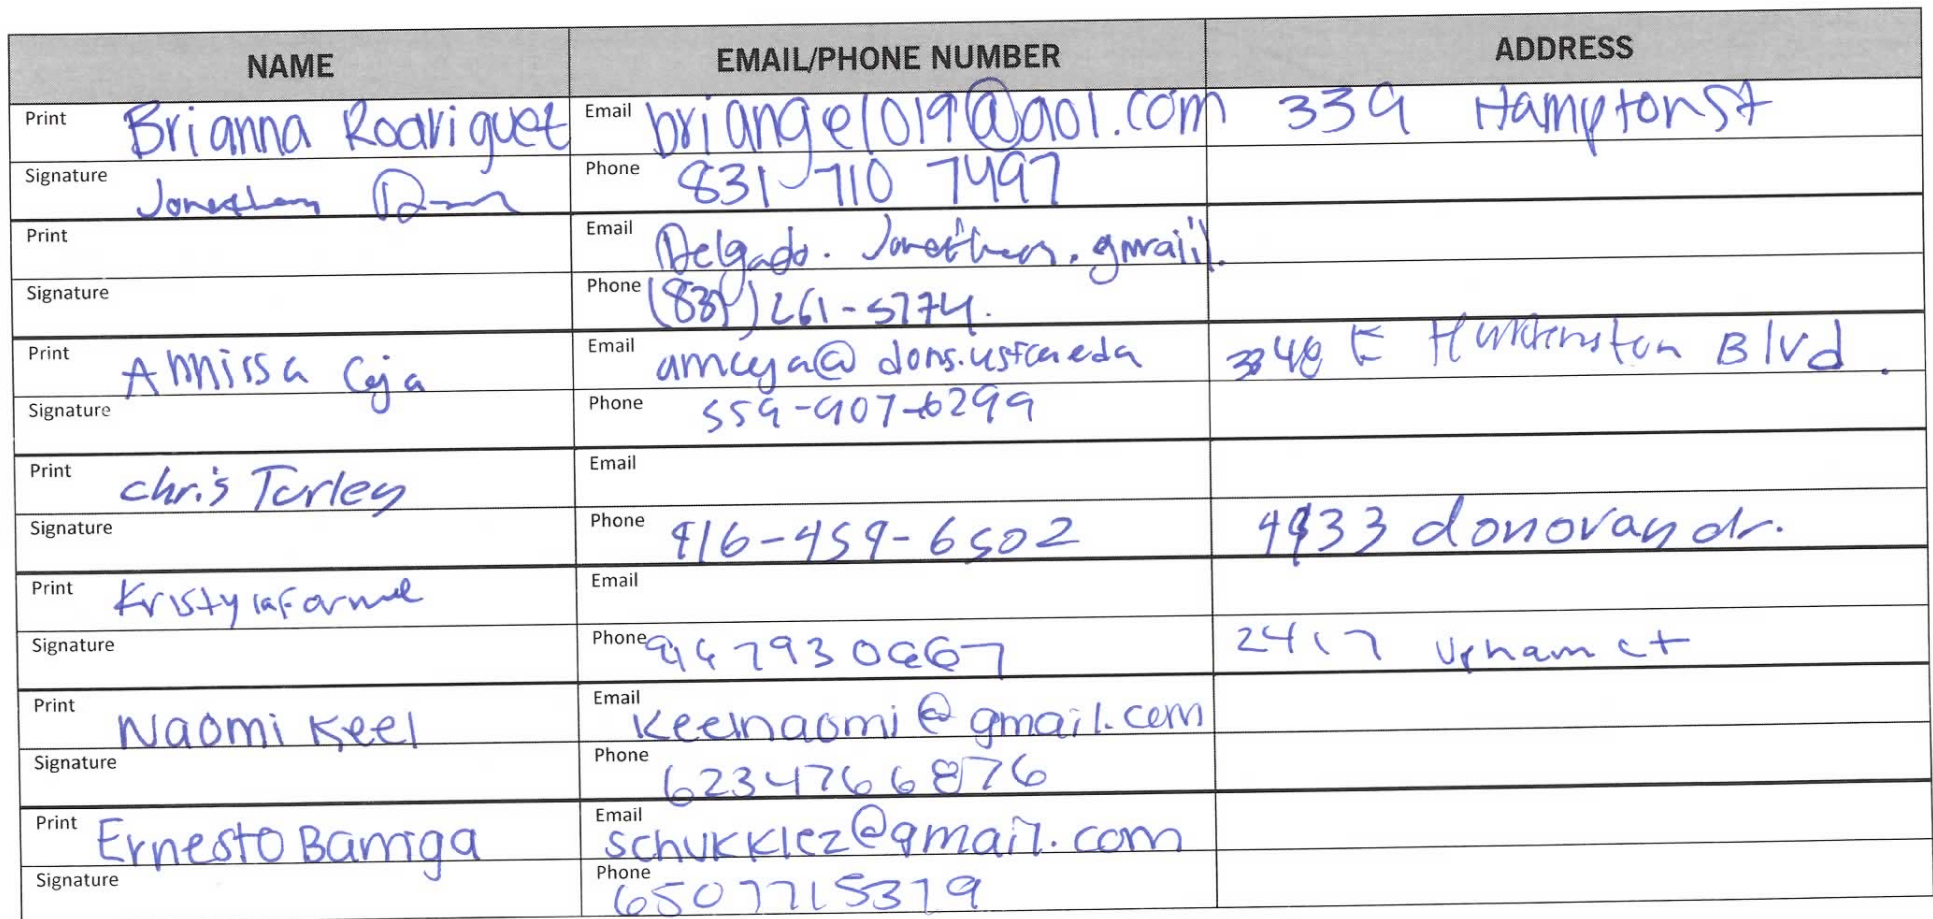 NAME EMAIL/PHONE NUMBER ADDRESS
Print Brianna Rodriguez Email briangel019@aol.com 339 Hampton St
Signature Jonathan Phone 831 710 7497
Print Email Delgado. Jonathan. gmail.
Signature Phone (831) 261-5774.
Print Annissa Ceja Email amceja@dons.usfca.eda 3348 E Blvd.
Signature Phone 559-907-6299
Print chris Turley Email
Signature Phone 916-459-6502 4933 donovan dr.
Print Kristy Email
Signature Phone 2417 Upham ct
Print Naomi Keel Email keelnaomi@gmail.com
Signature Phone 6234766876
Print Ernesto Barriga Email schukklez@gmail.com
Signature Phone 6507715379